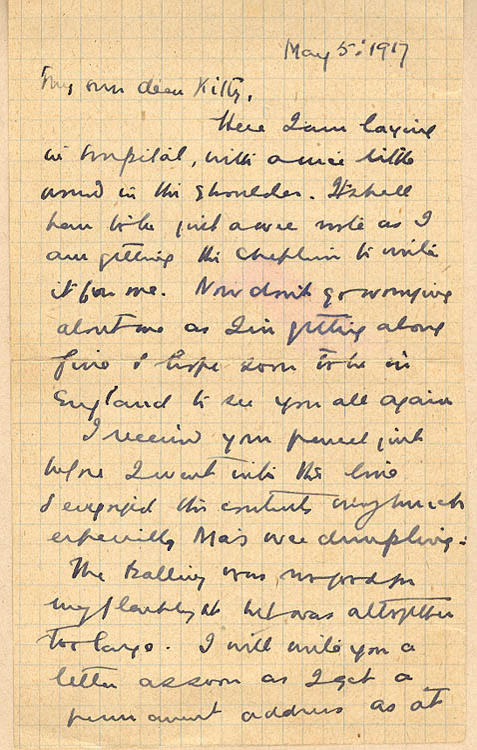 May 5: 1917
My own dear Kitty,
Here I am laying
in hospital, with a nice little
wound in the shoulder. It shall
have to be just a wee note as I
am getting the Chaplin to write
it for me. Now don't go worrying
about me as I'm getting along
fine & hope soon to be in
England to see you all again
I received your parcel just
before I went into the line
& enjoyed the contents very much
especially Ma's wee dumpling.
The was no good for
my flashlight but was altogether
too large. I will write you a
letter as soon as I get a
permanent address as at